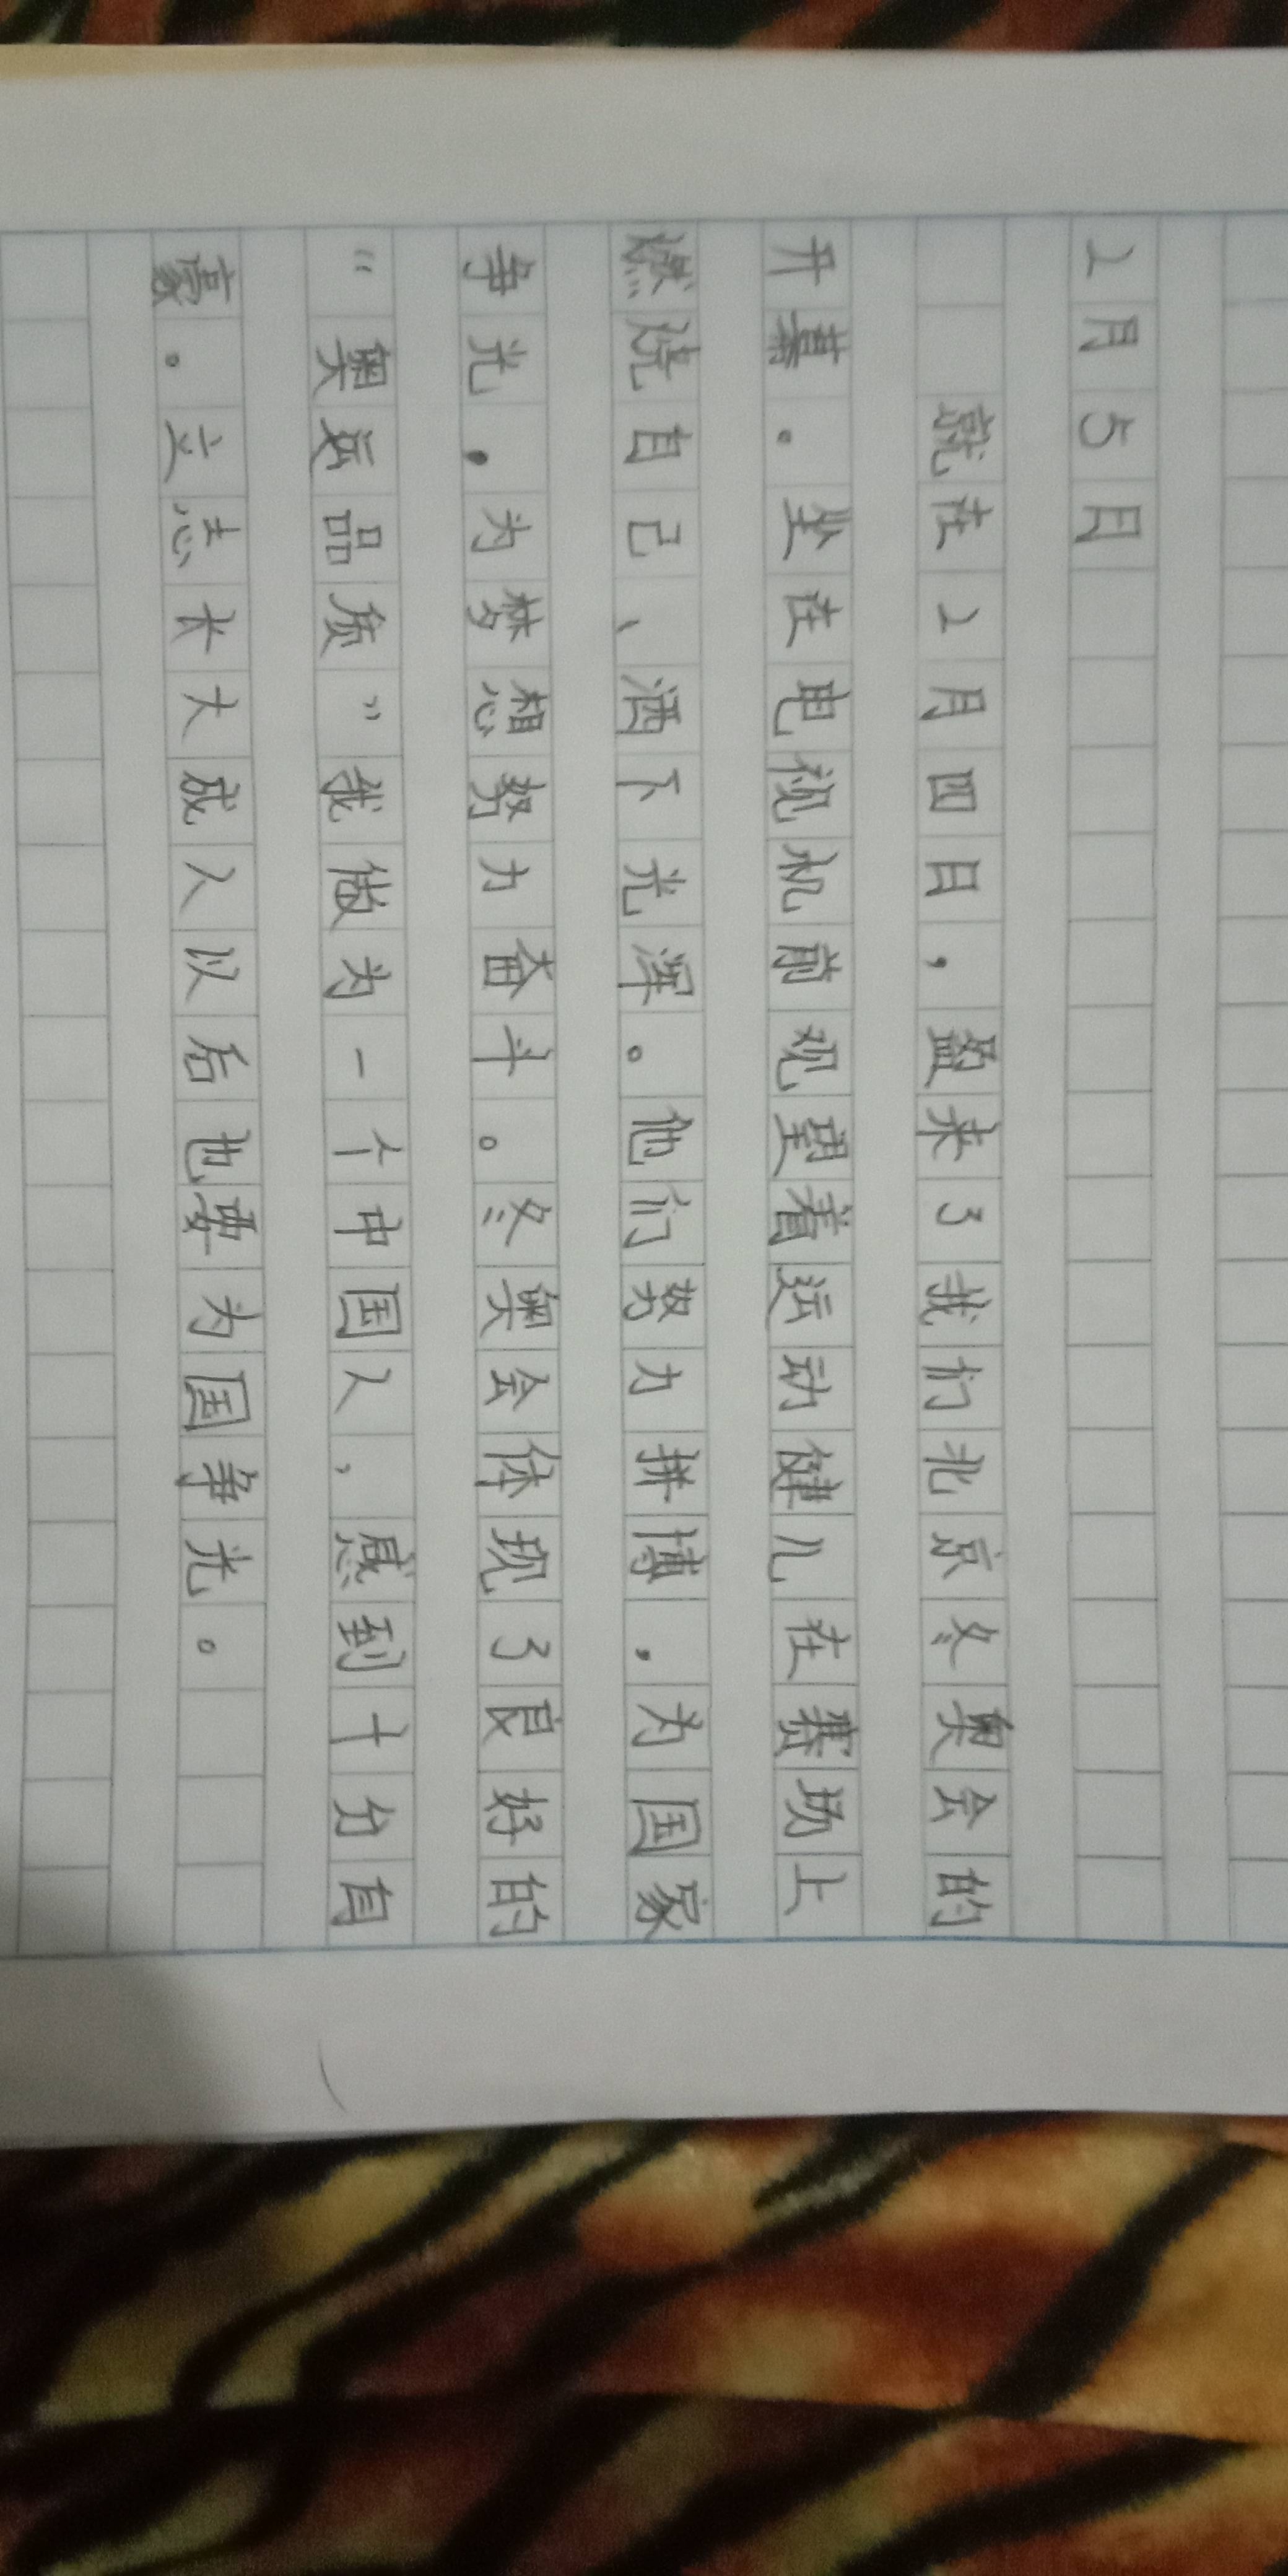 2月5日
就在2月四日，盈来了我们北京冬奥会的
开幕。坐在电视机前观望着运动健儿在赛场上
燃烧自己、洒下光浑。他们努力拼博，为国家
争光，为梦想努力奋斗。冬奥会体现了良好的
“奥运品质”我做为一个中国人，感到十分自
豪。立志长大成人以后也要为国争光。